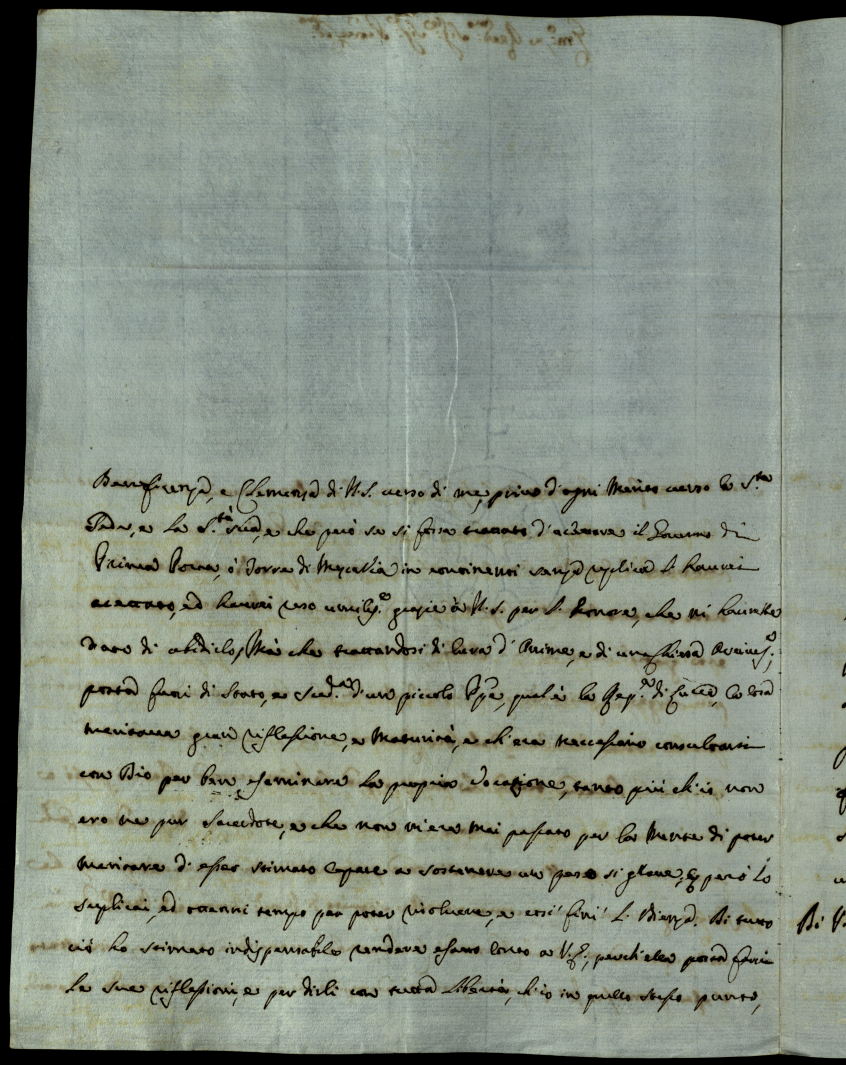 Beneficenza, e Clemenza di N.S. verso di me, privo d'ogni Merito verso la S.ta
Sede, e la S.tà Sua, e che però se si fosse trattato d'accettare il Governo di
Prima Porta, ò Torre di in continenti senza replica l' haverei
accettato, ed haverei reso umiliss.e grazie à N.S. per l' honore, che mi haurebbe
dato di ubidirlo, Mà che trattandosi di Cura d' Anime, e di una Chiesa
posta fuori di Stato, e d'un piccolo qual è la Rep.ca di Lucca, la cosa
meritava gran riflessione, e Maturità, e ch'era necessario consultarsi
con Dio per ben esaminare la propria Vocazione, tanto più ch'io non
ero ne pur Sacerdote, e che non m'era mai passato per la Mente di poter
meritare d' esser stimato capace a sostenere un peso sì grave, e però lo
suplicai, ed ottenni tempo per poter risolvere, e così finì l' Di tutto
ciò ho stimato indispensabile rendere esatto conto a V.E., perch'ella possa farvi
le sue riflessioni, e per dirli con tutta Libertà, ch'io in questo stesso punto,
Di V.